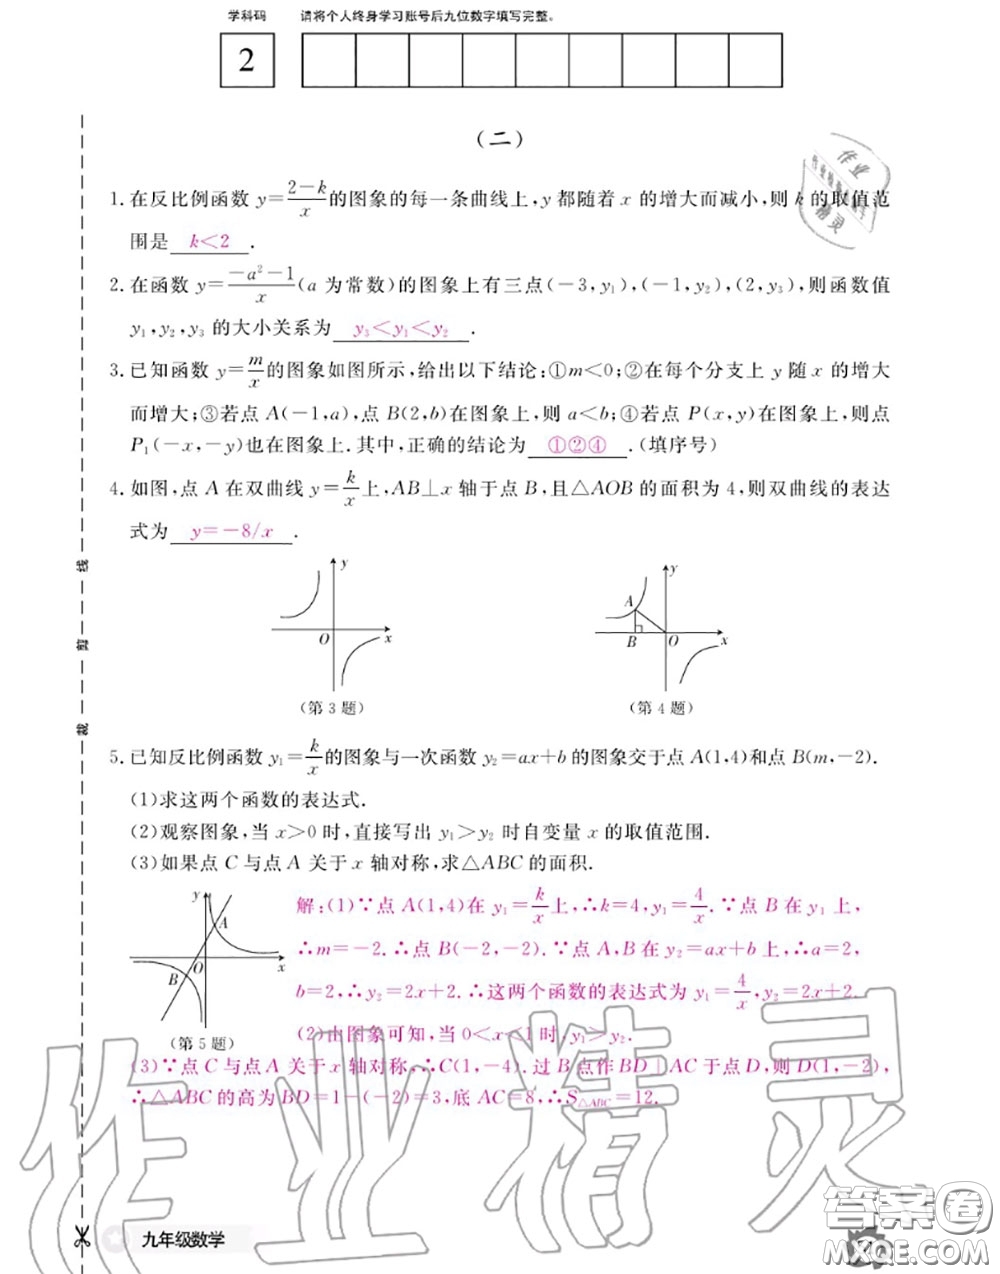 学科码 请将个人终身学习账号后九位数字填写完整。
2
(二)
1. 在反比例函数 y=\frac{2-k}{x}的图象的每一条曲线上,y 都随着 x 的增大而减小,则 k 的取值范
围是 k<2 .
2. 在函数 y=\frac{-a²-1}{x}(a 为常数)的图象上有三点(-3,y₁),(-1,y₂),(2,y₃),则函数值
y₁,y₂,y₃ 的大小关系为 y₃<y₁<y₂ .
3. 已知函数 y=\frac{m}{x}的图象如图所示,给出以下结论:①m<0;②在每个分支上 y 随 x 的增大
而增大;③若点 A(-1,a),点 B(2,b)在图象上,则 a<b;④若点 P(x,y)在图象上,则点
P₁(-x,-y)也在图象上.其中,正确的结论为 ①②④ .(填序号)
4. 如图,点 A 在双曲线 y=\frac{k}{x}上,AB⊥x 轴于点 B,且△AOB 的面积为 4,则双曲线的表达
式为 y=-8/x .
y
O
x
(第 3 题)
y
A
B
O
x
(第 4 题)
5. 已知反比例函数 y₁=\frac{k}{x}的图象与一次函数 y₂=ax+b 的图象交于点 A(1,4)和点 B(m,-2).
(1)求这两个函数的表达式.
(2)观察图象,当 x>0 时,直接写出 y₁>y₂ 时自变量 x 的取值范围.
(3)如果点 C 与点 A 关于 x 轴对称,求△ABC 的面积.
y
A
O
x
B
(第 5 题)
解:(1)∵点 A(1,4)在 y₁=\frac{k}{x}上,∴k=4,y₁=\frac{4}{x}.∵点 B 在 y₁ 上,
∴m=-2.∴点 B(-2,-2).∵点 A,B 在 y₂=ax+b 上,∴a=2,
b=2,∴y₂=2x+2.∴这两个函数的表达式为 y₁=\frac{4}{x},y₂=2x+2.
(2)由图象可知,当 0<x<1 时,y₁>y₂.
(3)∵点 C 与点 A 关于 x 轴对称,∴C(1,-4).过 B 点作 BD⊥AC 于点 D,则 D(1,-2),
∴△ABC 的高为 BD=1-(-2)=3,底 AC=8,∴S△ABC=12.
线
剪
裁
九年级数学
作业精灵
答案圈
MXQE.COM